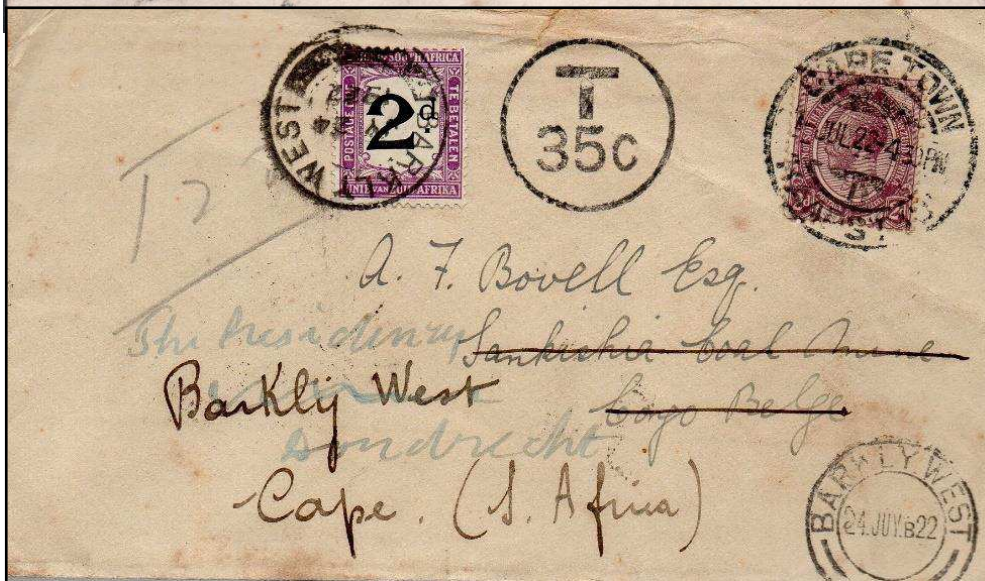 SOUTH AFRICA
POSTAGE DUE
TE BETALEN
2d.
UNIE VAN ZUID AFRIKA
BARKLY WEST
T
35C
CAPE TOWN
JUL 22 - 4 PM
A. F. Bovell Esq.
The Presidency
Sankishia Coal Mine
Barklij West
Congo Belge
Dordrecht
Cape. (S. Africa)
BARKLY WEST
24.JUY.B22